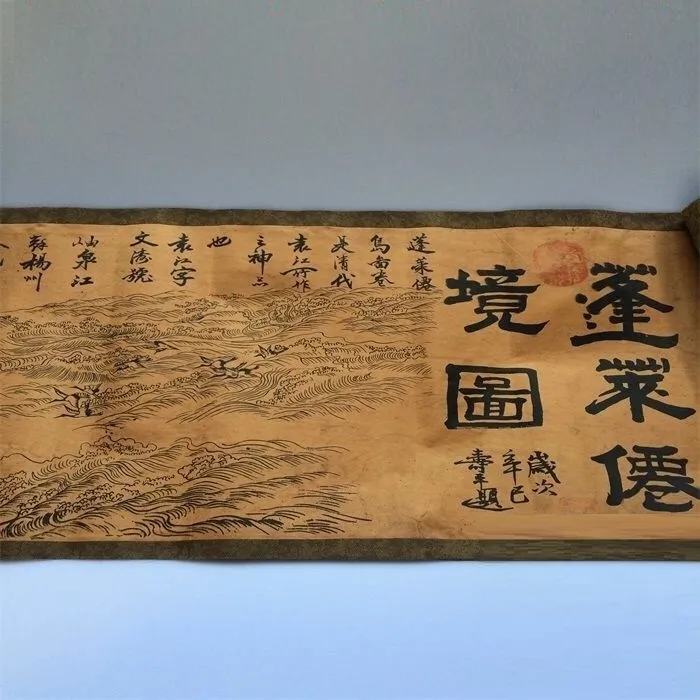 蓬萊僊
境圖
歲次
辛巳
壽平題
蓬萊僊
島畫卷
是清代
袁江所作
之神品
也
袁江字
文濤號
岫泉江
蘇揚州